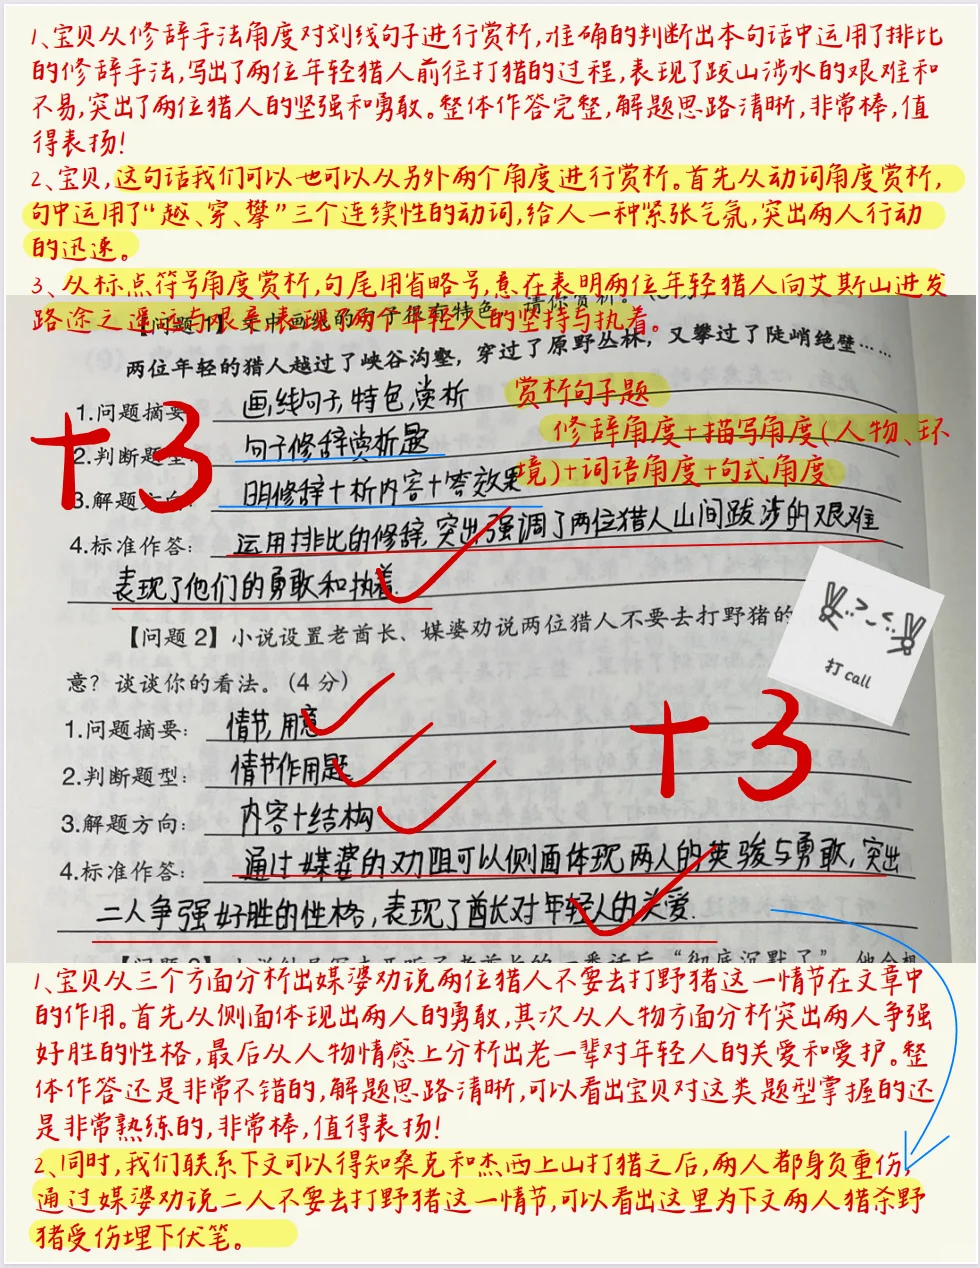 1、宝贝从修辞手法角度对划线句子进行赏析,准确的判断出本句话中运用了排比
的修辞手法,写出了两位年轻猎人前往打猎的过程,表现了跋山涉水的艰难和
不易,突出了两位猎人的坚强和勇敢。整体作答完整,解题思路清晰,非常棒,值
得表扬!
2、宝贝,这句话我们可以也可以从另外两个角度进行赏析。首先从动词角度赏析,
句中运用了“越、穿、攀”三个连续性的动词,给人一种紧张气氛,突出两人行动
的迅速。
3、从标点符号角度赏析,句尾用省略号,意在表明两位年轻猎人向艾斯山进发
路途之遥远与艰辛,表现了两个年轻人的坚持与执着。
【问题1】文中画线的句子很有特色,请你赏析。
两位年轻的猎人越过了峡谷沟壑,穿过了原野丛林,又攀过了陡峭绝壁……
1.问题摘要 画线句子,特色,赏析
赏析句子题
修辞角度+描写角度(人物、环
境)+词语角度+句式角度
2.判断题型: 句子修辞赏析题
3.解题方向: 明修辞+析内容+答效果
+3
4.标准作答: 运用排比的修辞,突出强调了两位猎人山间跋涉的艰难
表现了他们的勇敢和执着.
打call
【问题2】小说设置老酋长、媒婆劝说两位猎人不要去打野猪的
意?谈谈你的看法。(4分)
1.问题摘要: 情节,用意
2.判断题型: 情节作用题
3.解题方向: 内容+结构
+3
4.标准作答: 通过媒婆的劝阻可以侧面体现两人的英骏与勇敢,突出
二人争强好胜的性格,表现了酋长对年轻人的关爱.
一番话后,“彻底沉默了”,
1、宝贝从三个方面分析出媒婆劝说两位猎人不要去打野猪这一情节在文章中
的作用。首先从侧面体现出两人的勇敢,其次从人物方面分析突出两人争强
好胜的性格,最后从人物情感上分析出老一辈对年轻人的关爱和爱护。整
体作答还是非常不错的,解题思路清晰,可以看出宝贝对这类题型掌握的还
是非常熟练的,非常棒,值得表扬!
2、同时,我们联系下文可以得知桑克和杰西上山打猎之后,两人都身负重伤,
通过媒婆劝说二人不要去打野猪这一情节,可以看出这里为下文两人猎杀野
猪受伤埋下伏笔。